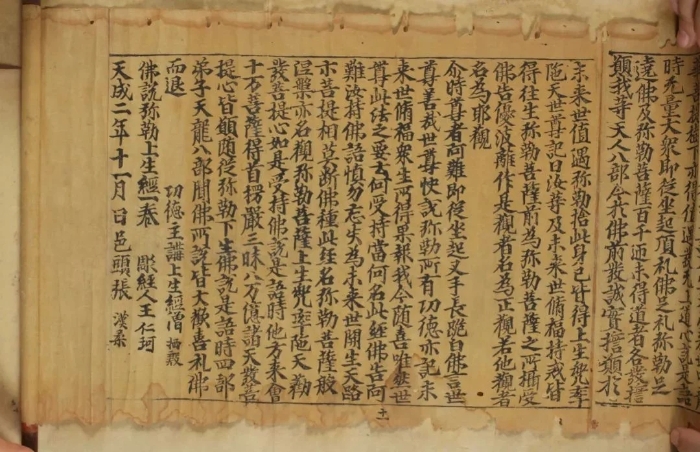 時无量大衆即從坐起頂礼佛足礼弥勒足
遶佛及弥勒菩薩百千迊未得道者各發擔
願我等天人八部今於佛前發誠實擔願於
未來世值遇弥勒捨此身已皆得上生兜率
陁天世尊記曰汝等及未來世脩福持戒皆
得往生弥勒菩薩前為弥勒菩薩之所攝受
佛告優波離作是觀者名為正觀若他觀者
名為耶觀
尒時尊者阿難即從坐起叉手長跪白佛言世
尊善哉世尊快説弥勒所有功德亦記未
來世脩福衆生所得果報我今随喜唯然世
尊此法之要云何受持當何名此経佛告阿
難汝持佛語慎勿忘失為未來世開生天路
示菩提相莫断佛種此経名弥勒菩薩般
涅槃亦名觀弥勒菩薩上生兜率陁天勸
發菩提心如是受持佛説是語時他方來會
十万菩薩得首楞嚴三昧八万億諸天發菩
提心皆願随從弥勒下生佛説是語時四部
弟子天龍八部聞佛所説皆大歡喜礼佛
而退
功德主講上生經僧
佛説弥勒上生經一卷 彫経人王仁珂
天成二年十一月日邑頭張漢柔
十一